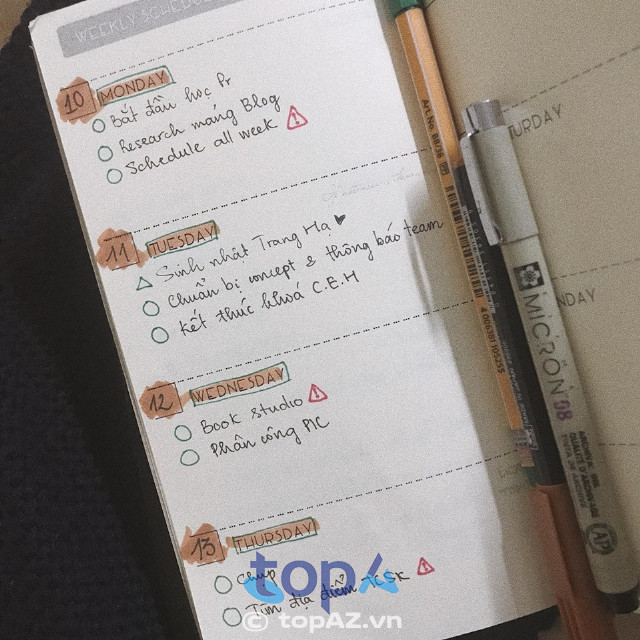 WEEKLY SCHEDULE
10 MONDAY
Bắt đầu học Pr
Research mảng Blog
Schedule all week
11 TUESDAY
Sinh nhật Trang Hạ
Chuẩn bị concept & thông báo team
Kết thúc khoá C.E.H
12 WEDNESDAY
Book studio
Phân công PIC
13 THURSDAY
Chụp
Tìm địa điểm
TURDAY
NDAY
Art.No. 88/36
4 006381 105255
MICRON 08
topAZ
© topAZ.vn